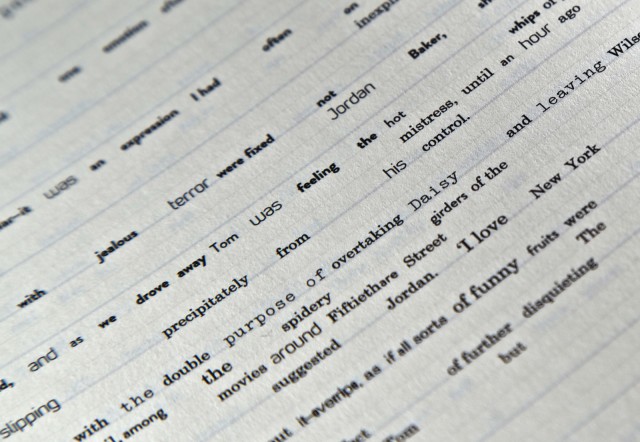 one emotion
was an expression I had often on
with jealous terror were fixed not Jordan Baker,
and as we drove away Tom was feeling the hot whips of
mistress, until an hour ago
slipping precipitately from his control.
with the double purpose of overtaking Daisy and leaving
among the spidery girders of the
movies around Fiftiethare Street
suggested Jordan. 'I love New York
as if all sorts of funny fruits were
of further disquieting The
but
Tom